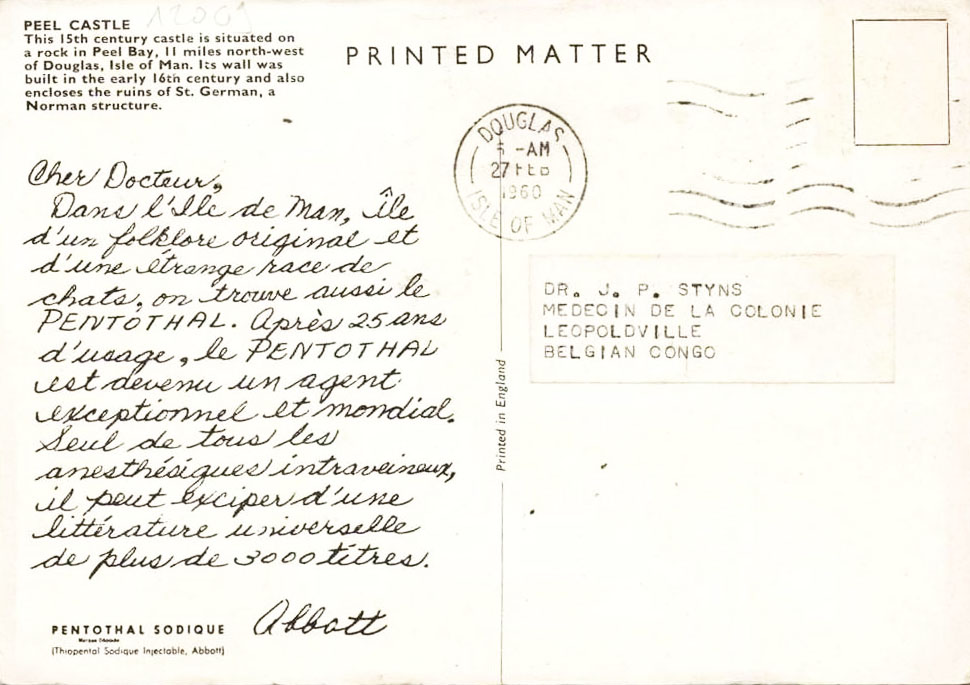 PEEL CASTLE
This 15th century castle is situated on
a rock in Peel Bay, 11 miles north-west
of Douglas, Isle of Man. Its wall was
built in the early 16th century and also
encloses the ruins of St. German, a
Norman structure.
PRINTED MATTER
DOUGLAS
-AM
27 FEB
1960
ISLE OF MAN
Cher Docteur,
Dans l'Ile de Man, île
d'un folklore original et
d'une étrange race de
chats, on trouve aussi le
PENTOTHAL. Après 25 ans
d'usage, le PENTOTHAL
est devenu un agent
exceptionnel et mondial.
Seul de tous les
anesthésiques intraveineux,
il peut exciper d'une
littérature universelle
de plus de 3000 titres.
Abbott
PENTOTHAL SODIQUE
(Thiopental Sodique Injectable, Abbott)
Printed in England
DR. J. P. STYNS
MEDECIN DE LA COLONIE
LEOPOLDVILLE
BELGIAN CONGO